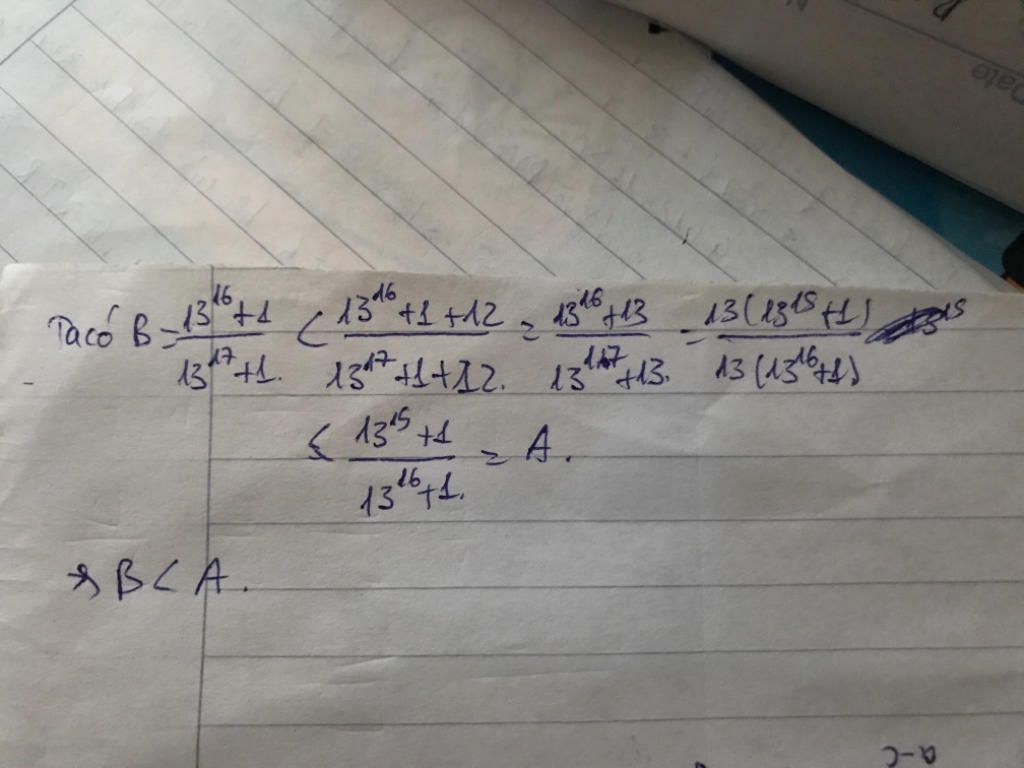 Ta có B = \frac{13^{16}+1}{13^{17}+1.} < \frac{13^{16}+1+12}{13^{17}+1+12.} = \frac{13^{16}+13}{13^{17}+13.} = \frac{13(13^{15}+1)}{13(13^{16}+1)}
< \frac{13^{15}+1}{13^{16}+1.} = A.
B < A.
a-c
Date